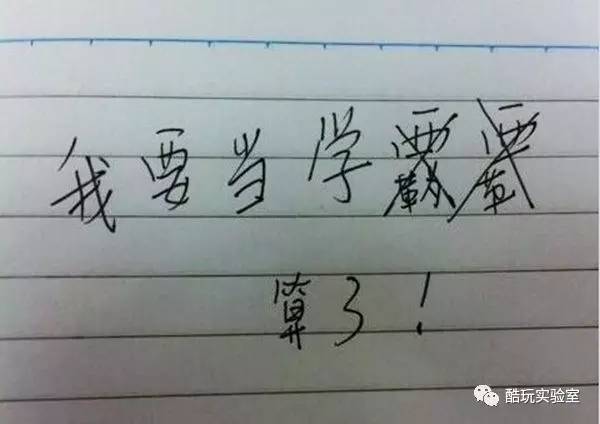 我要当学
算了！
酷玩实验室